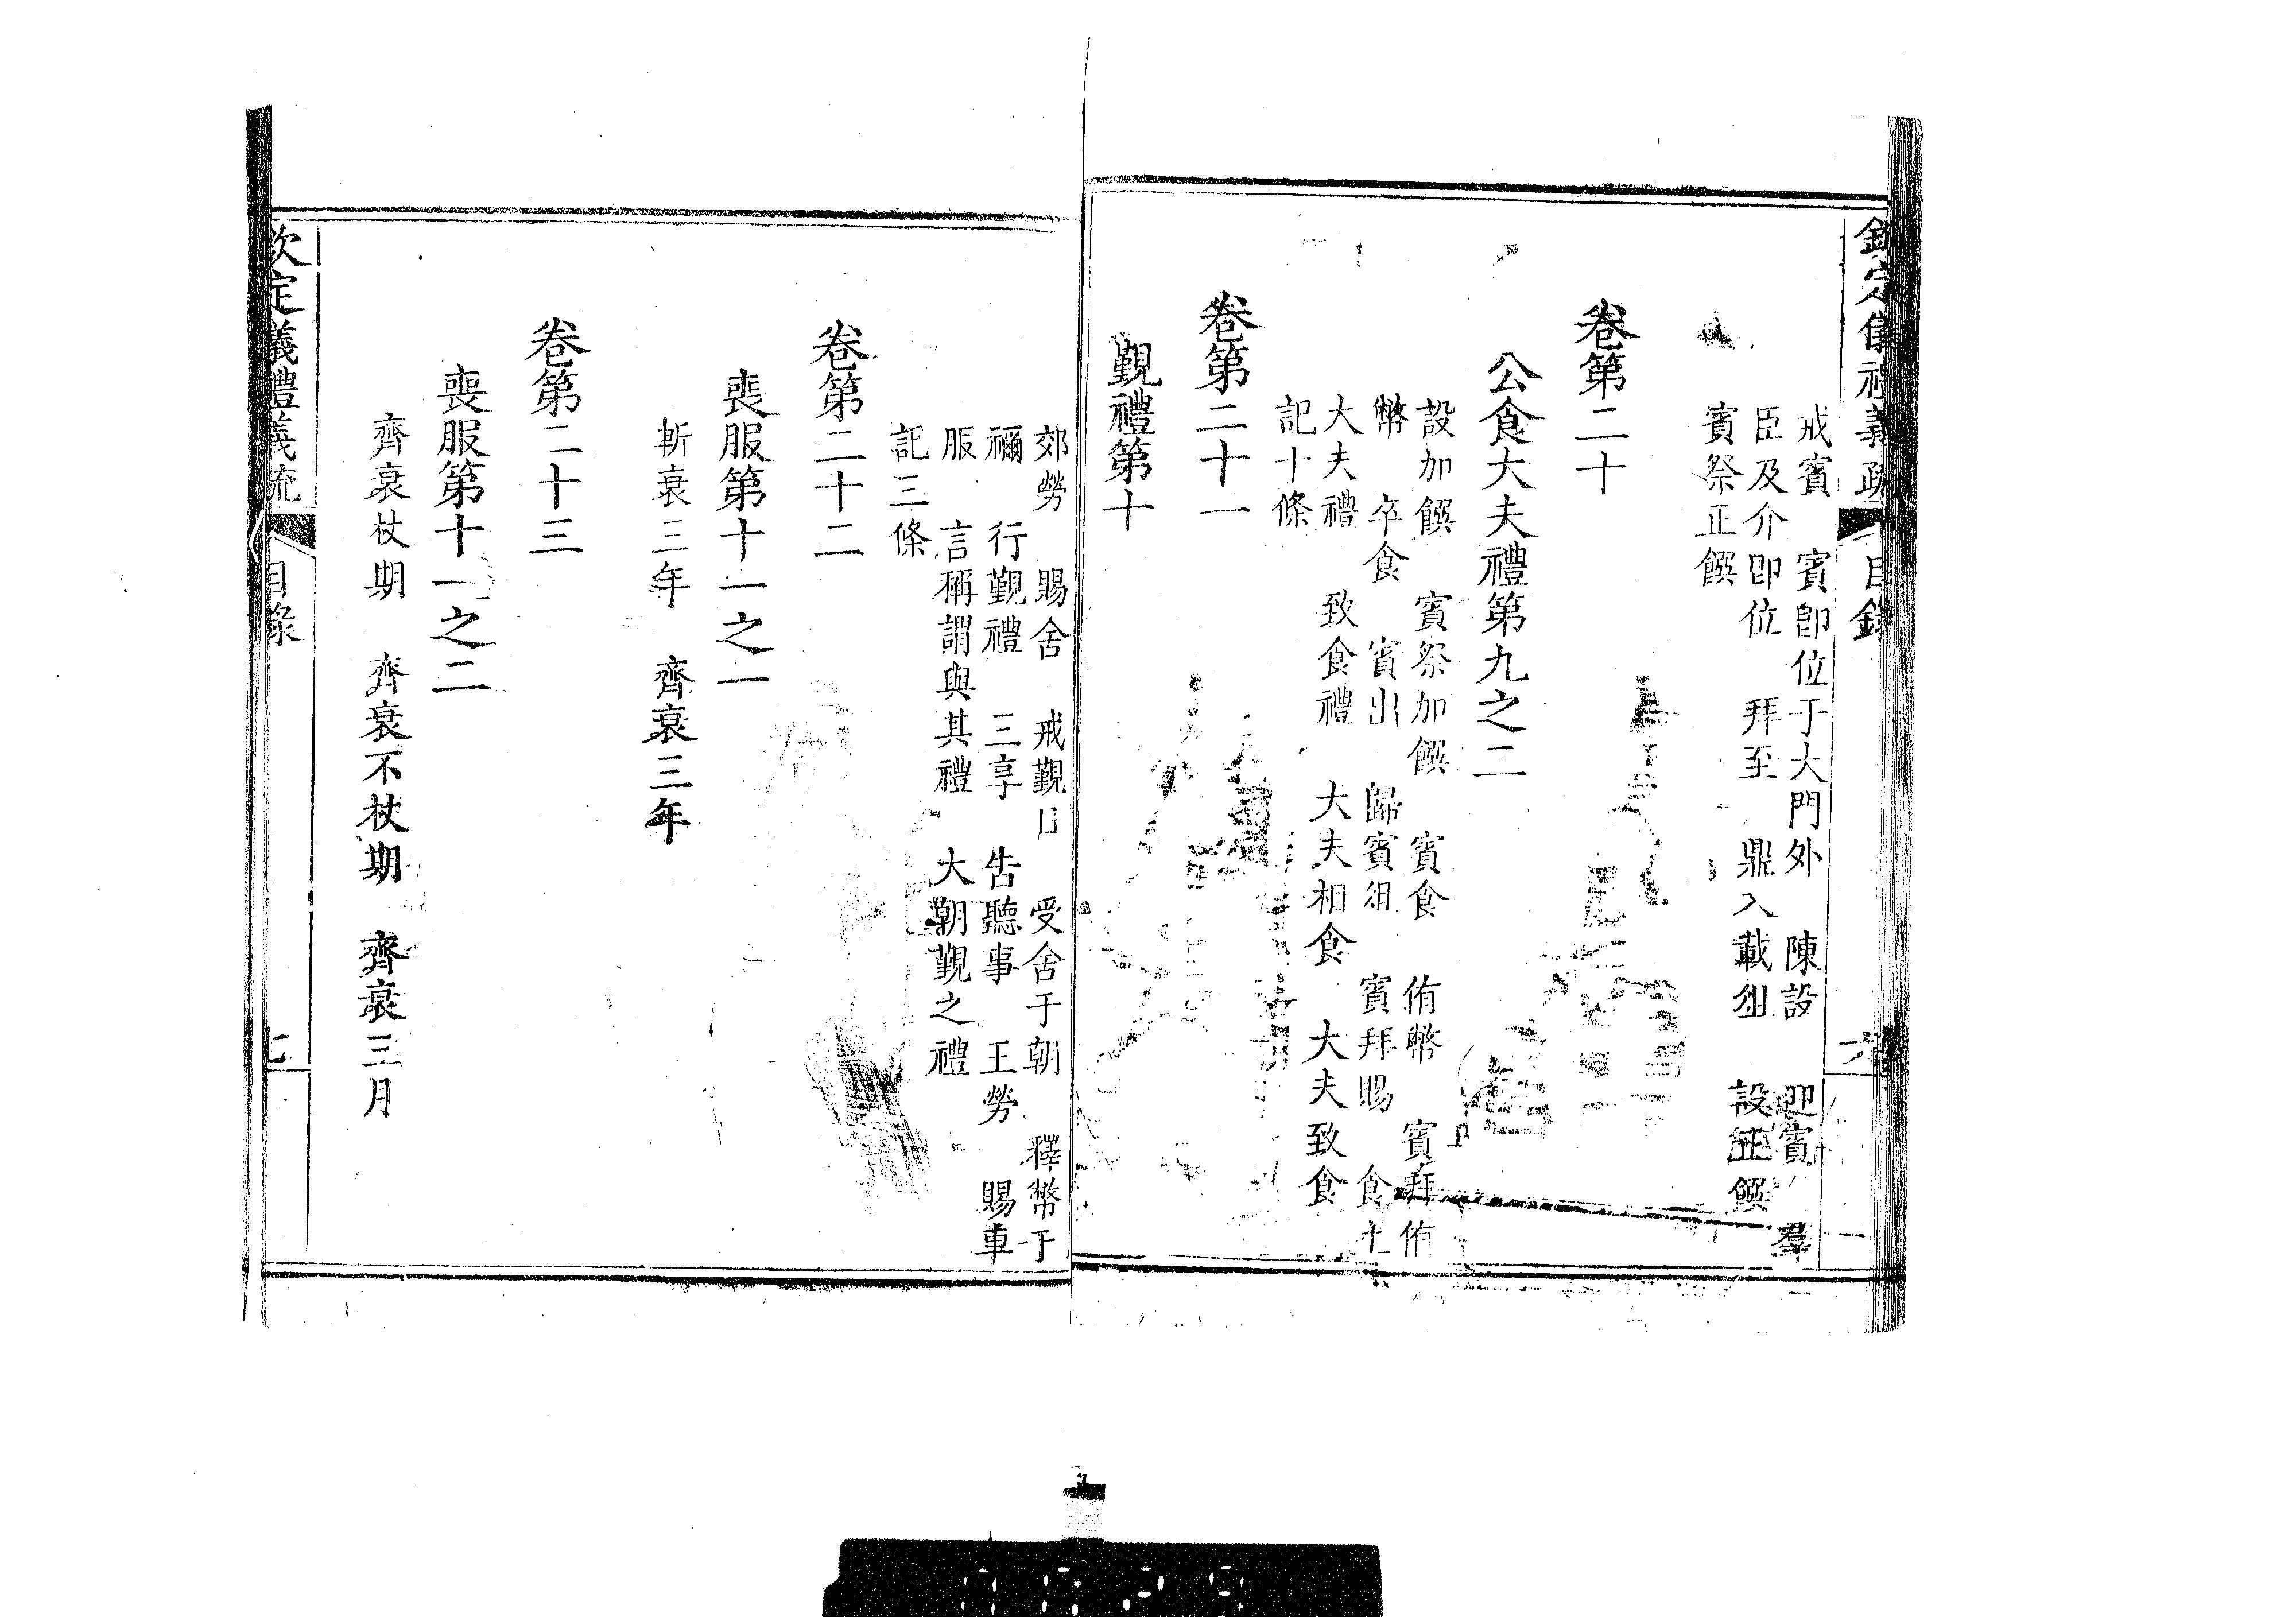 欽定儀禮義疏 目錄 六
戒賓 賓卽位于大門外 陳設 迎賓 羣
臣及介卽位 拜至 鼎入載俎 設正饌
賓祭正饌
卷第二十
公食大夫禮第九之二
設加饌 賓祭加饌 賓食 侑幣 賓拜侑
幣 卒食 賓出 歸賓俎 賓拜賜 食上
大夫禮 致食禮 大夫相食 大夫致食
記十條
卷第二十一
覲禮第十
郊勞 賜舍 戒覲日 受舍于朝 釋幣于
禰 行覲禮 三享 告聽事 王勞 賜車
服 言稱謂與其禮 大朝覲之禮
記三條
卷第二十二
喪服第十一之一
斬衰三年 齊衰三年
卷第二十三
喪服第十一之二
齊衰杖期 齊衰不杖期 齊衰三月
欽定儀禮義疏 目錄 七